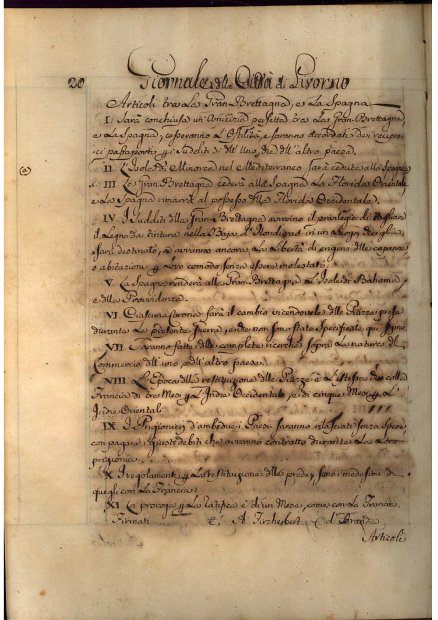 20 Giornale della Città di Livorno
Articoli tra La Gran-Brettagna, e La Spagna
I. Sarà conchiusa un' Amicizia perfetta tra La Gran-Brettagna
e La Spagna, cesseranno L'Ostilità, e saranno accordati
passaporti Sudditi dell' Uno, e dell' altro paese.
(a)
II. L'Isola di Minorca nel Mediterraneo sarà ceduta alla Spagna
III. La Gran-Brettagna cederà alla Spagna La Florida Orientale
e La Spagna rimarrà al possesso della Florida Occidentale.
IV. I Sudditi della Gran-Brettagna avranno il privilegio di tagliare
il Legno da tintura nella Baja d'Honduras in un Luogo che gli
sarà destinato, e avranno ancora La Libertà di erigere delle capanne
o abitazioni Loro comodo senza essere molestati.
V. La Spagna renderà alla Gran-Brettagna L'Isole di Bahama
e della Provvidenza.
VI Ciascuna Corona farà il cambio vicendevole delle Piazze prese
durante La presente Guerra, non sono state specificate qui sopra.
VII Saranno fatte delle complete ricerche sopra La natura del
Commercio dell' uno, e dell' altro paese.
VIII L'Epoca della restituzione delle Piazze è L'istessa che colla
Francia di tre Mesi L'Indie Occidentali, e di cinque Mesi L'
Indie Orientali.
IX. I Prigionieri d'ambedue i Paesi saranno rilasciati senza spesa
con pagare i giusti debiti che avranno contratto durante La Loro
prigionia.
X I regolamenti La restituzione delle prede, sono i medesimi di
quegli con La Francia.
XI La proroga La ratifica è di un Mese, come con La Francia
Firmati A. Fitzherbert
Articoli